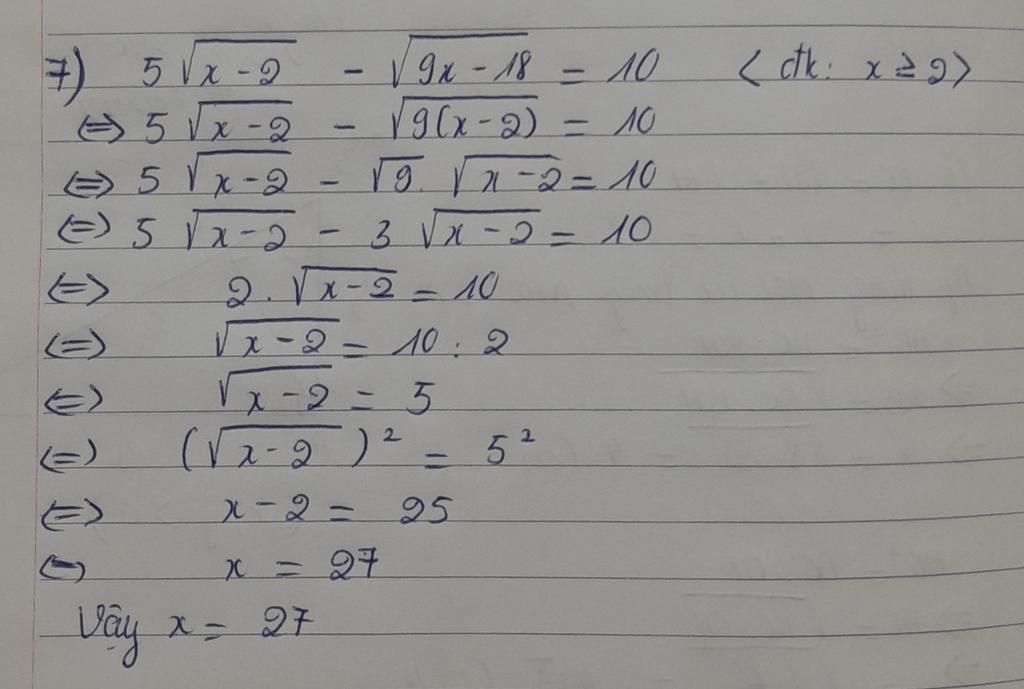 7) 5√(x-2) - √(9x-18) = 10 < đk: x ≥ 2>
⇔ 5√(x-2) - √(9(x-2)) = 10
⇔ 5√(x-2) - √9. √(x-2) = 10
⇔ 5√(x-2) - 3√(x-2) = 10
⇔ 2.√(x-2) = 10
⇔ √(x-2) = 10 : 2
⇔ √(x-2) = 5
⇔ (√(x-2))² = 5²
⇔ x-2 = 25
⇔ x = 27
Vậy x = 27